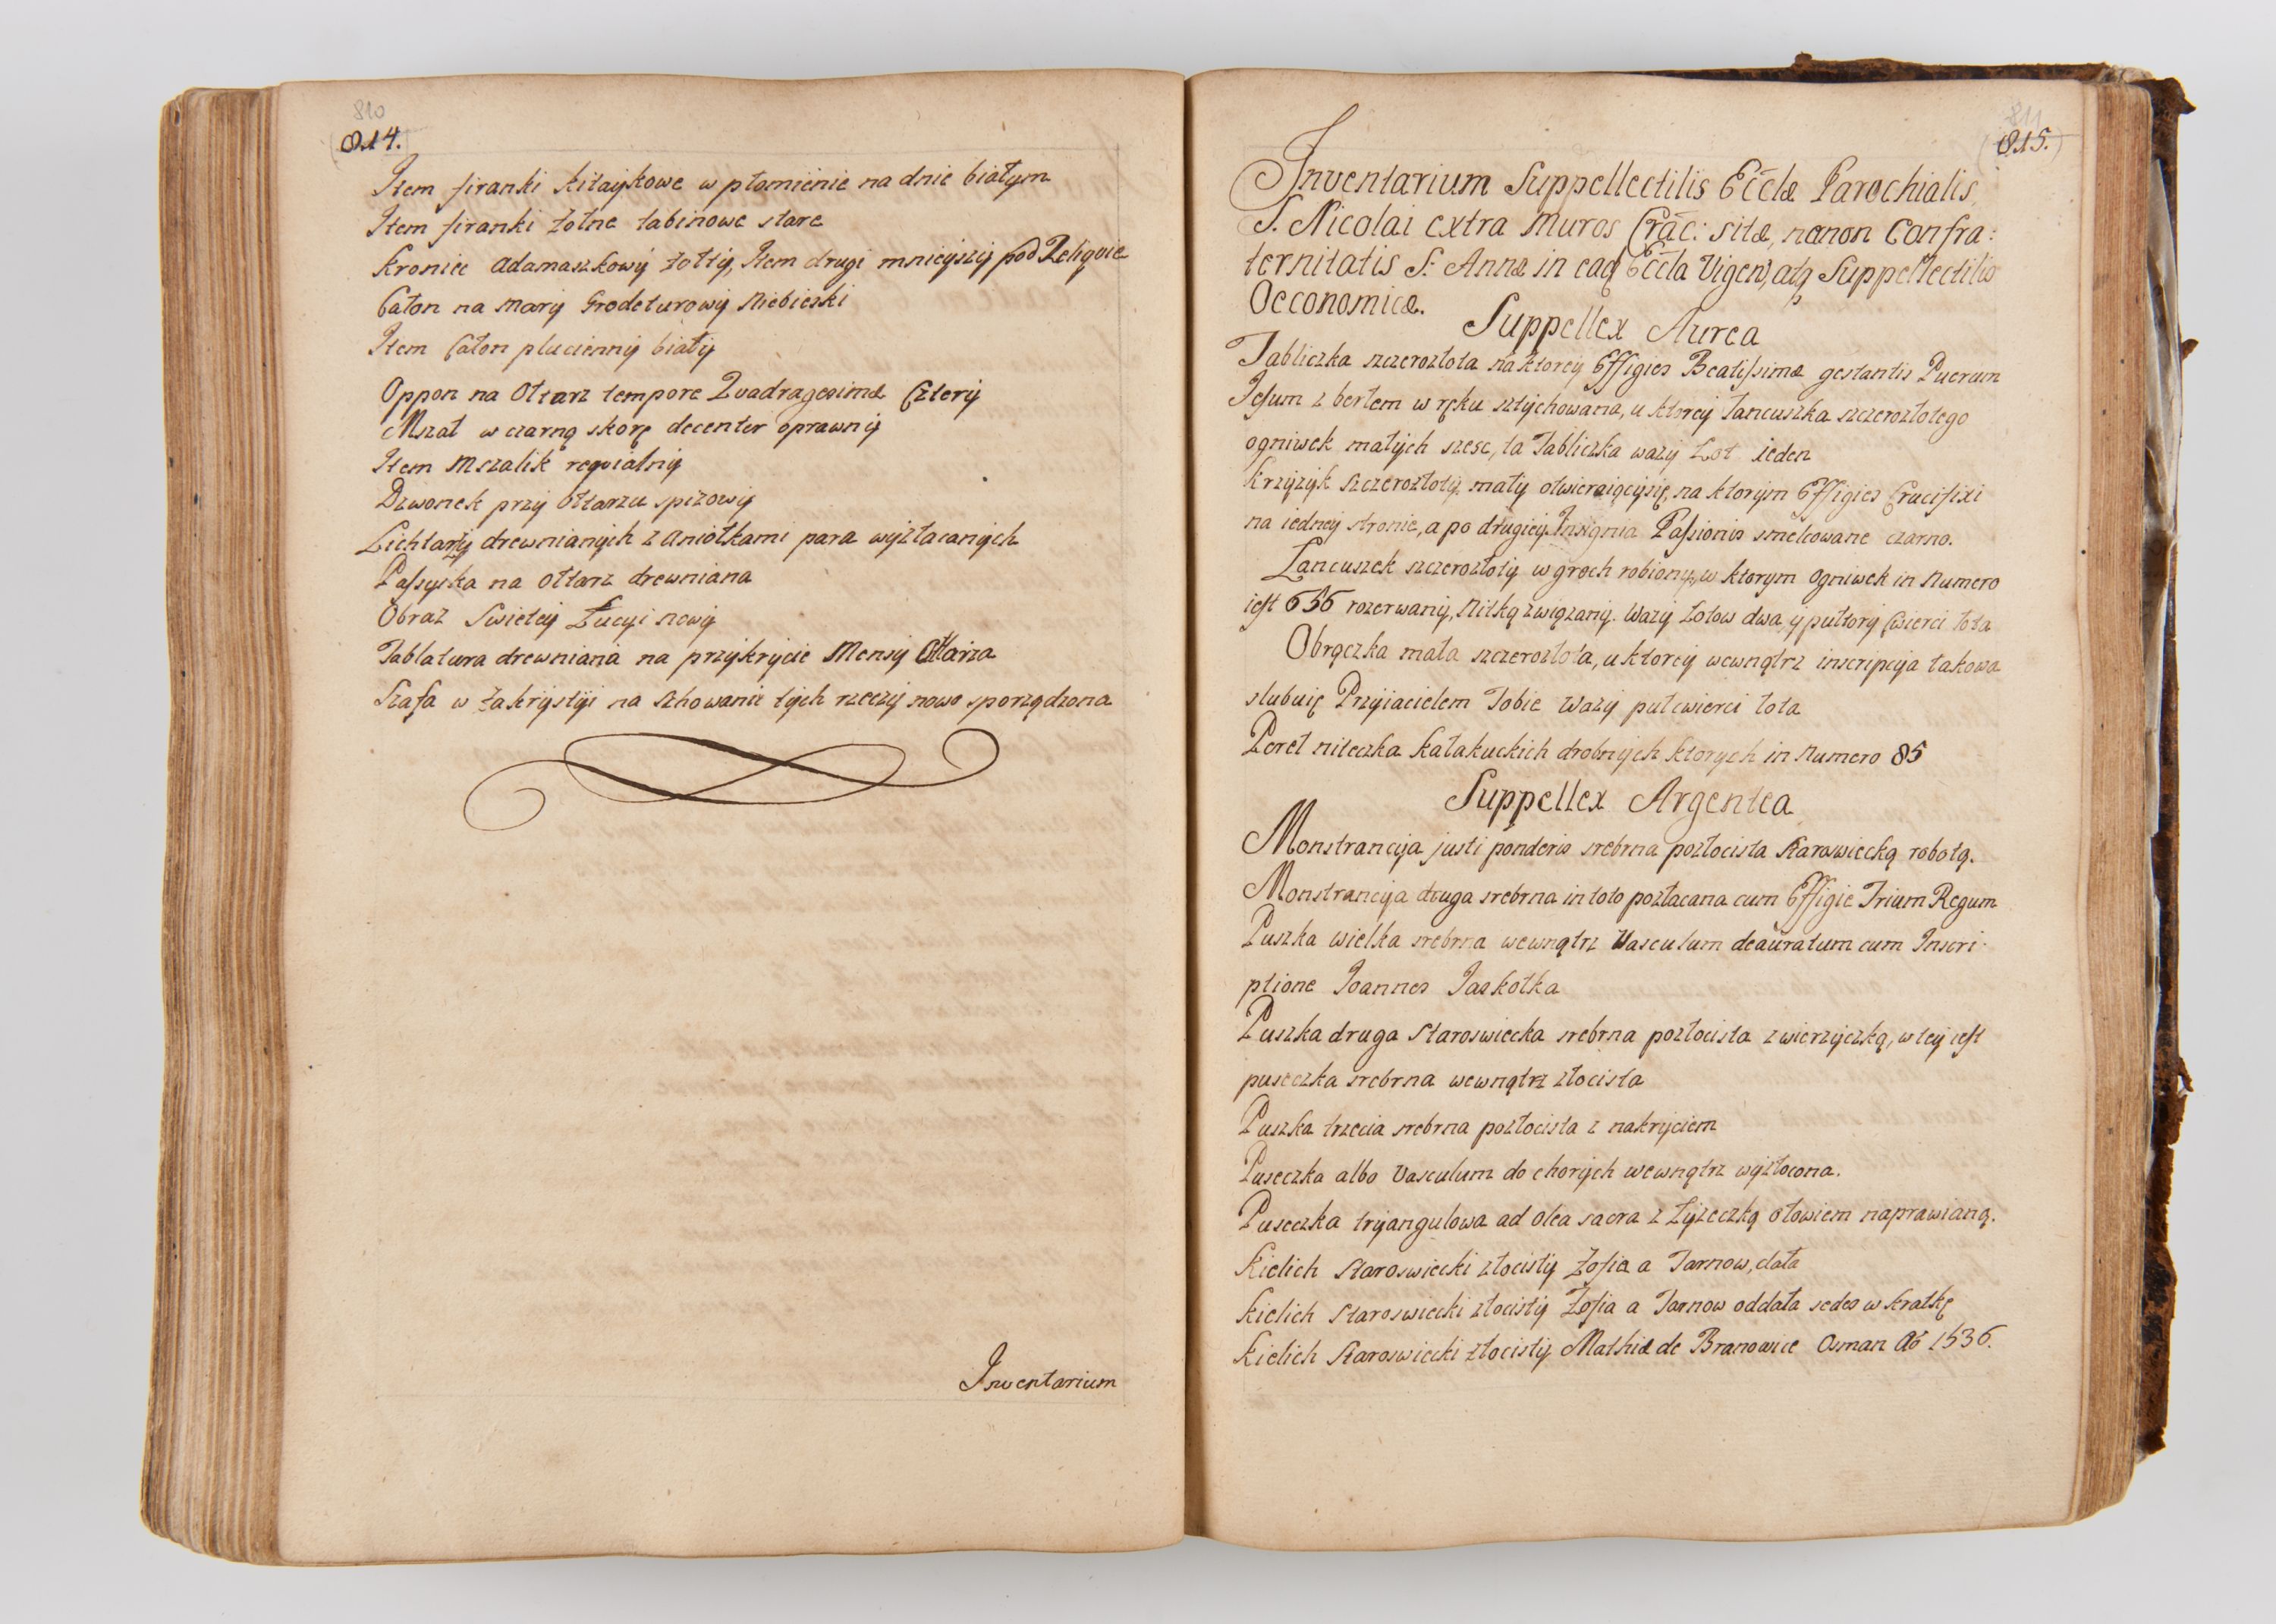 810
814.
Item firanki kitaykowe w płomienie na dnie białym
Item firanki żołne tabinowe stare
Kroniec adamaszkowy żołty, Item drugi mnieyszy pod Reliqvie
Całon na mary Grodeturowy Niebieski
Item Całon plucienny biały
Oppon na Ołtarz tempore Quadragesimæ Cztery
Mszał w czarną skorę decenter oprawny
Item Mszalik reqvialny
Dzwonek przy Ołtarzu spizowy
Lichtarzy drewnianych z Aniołkami para wyzłacanych
Passyika na Ołtarz drewniana
Obraz Swietey Łucyi nowy
Tablatura drewniana na przykrycie Mensy Ołtarza
Szafa w Zakrystyi na schowanie tych rzeczy nowo sporządzona
Inventarium
811
815.
Inventarium Suppellectilis Eccłæ Parochialis
S. Nicolai extra muros Crac: sitæ, nenon Confra:
ternitatis S: Annæ in eaq Eccła Vigen, atq Suppellectilis
Oeconomicæ.
Suppellex Aurea
Tabliczka szczerozłota na ktorey Effigies Beatissimæ gestantis Puerum
Jesum z berłem w ręku sztychowana, u ktorey łancuszka szczerozłotego
ogniwek małych szesc, ta Tabliczka wazy Łot ieden
Krzyzyk szczerozłoty mały otwieraiącysię, na ktorym Effigies Crucifixi
na iedney stronie, a po drugiey Insignia Passionis smelcowane czarno.
Łancuszek szczerozłoty w groch robiony, w ktorym Ogniwek in Numero
iest 656 rozerwany, Nitką związany. Wazy Łotow dwa y pułtory Cwierci łota
Obrączka mała szczerozłota, u ktorey wewnątrz inscripcya takowa
slubuię Przyiacielem Tobie wazy puł cwierci łota
Pereł niteczka kałakuckich drobnych ktorych in Numero 85
Suppellex Argentea
Monstrancya justi ponderis srebrna pozłocista Staroswiecką robotą.
Monstrancya druga srebrna in toto pozłacana cum Effigie Trium Regum
Puszka wielka srebrna wewnątrz Vasculum deauratum cum Inscri-
ptione Joannes Jaskołka
Puszka druga Staroswiecka srebrna pozłocista z wierzyczką, w tey iest
puseczka srebrna wewnątrz złocista
Puszka trzecia srebrna pozłocista z nakryciem
Puseczka albo Vasculum do chorych wewnątrz wyzłocona.
Puseczka tryangulowa ad Olea sacra z Łyzeczką ołowiem naprawianą.
Kielich Staroswiecki złocisty Zofia a Tarnow, dała
Kielich Staroswiecki złocisty Zofia a Tarnow oddała sedes w kratkę
Kielich Staroswiecki złocisty Mathiæ de Branowice Osman Aō 1536.